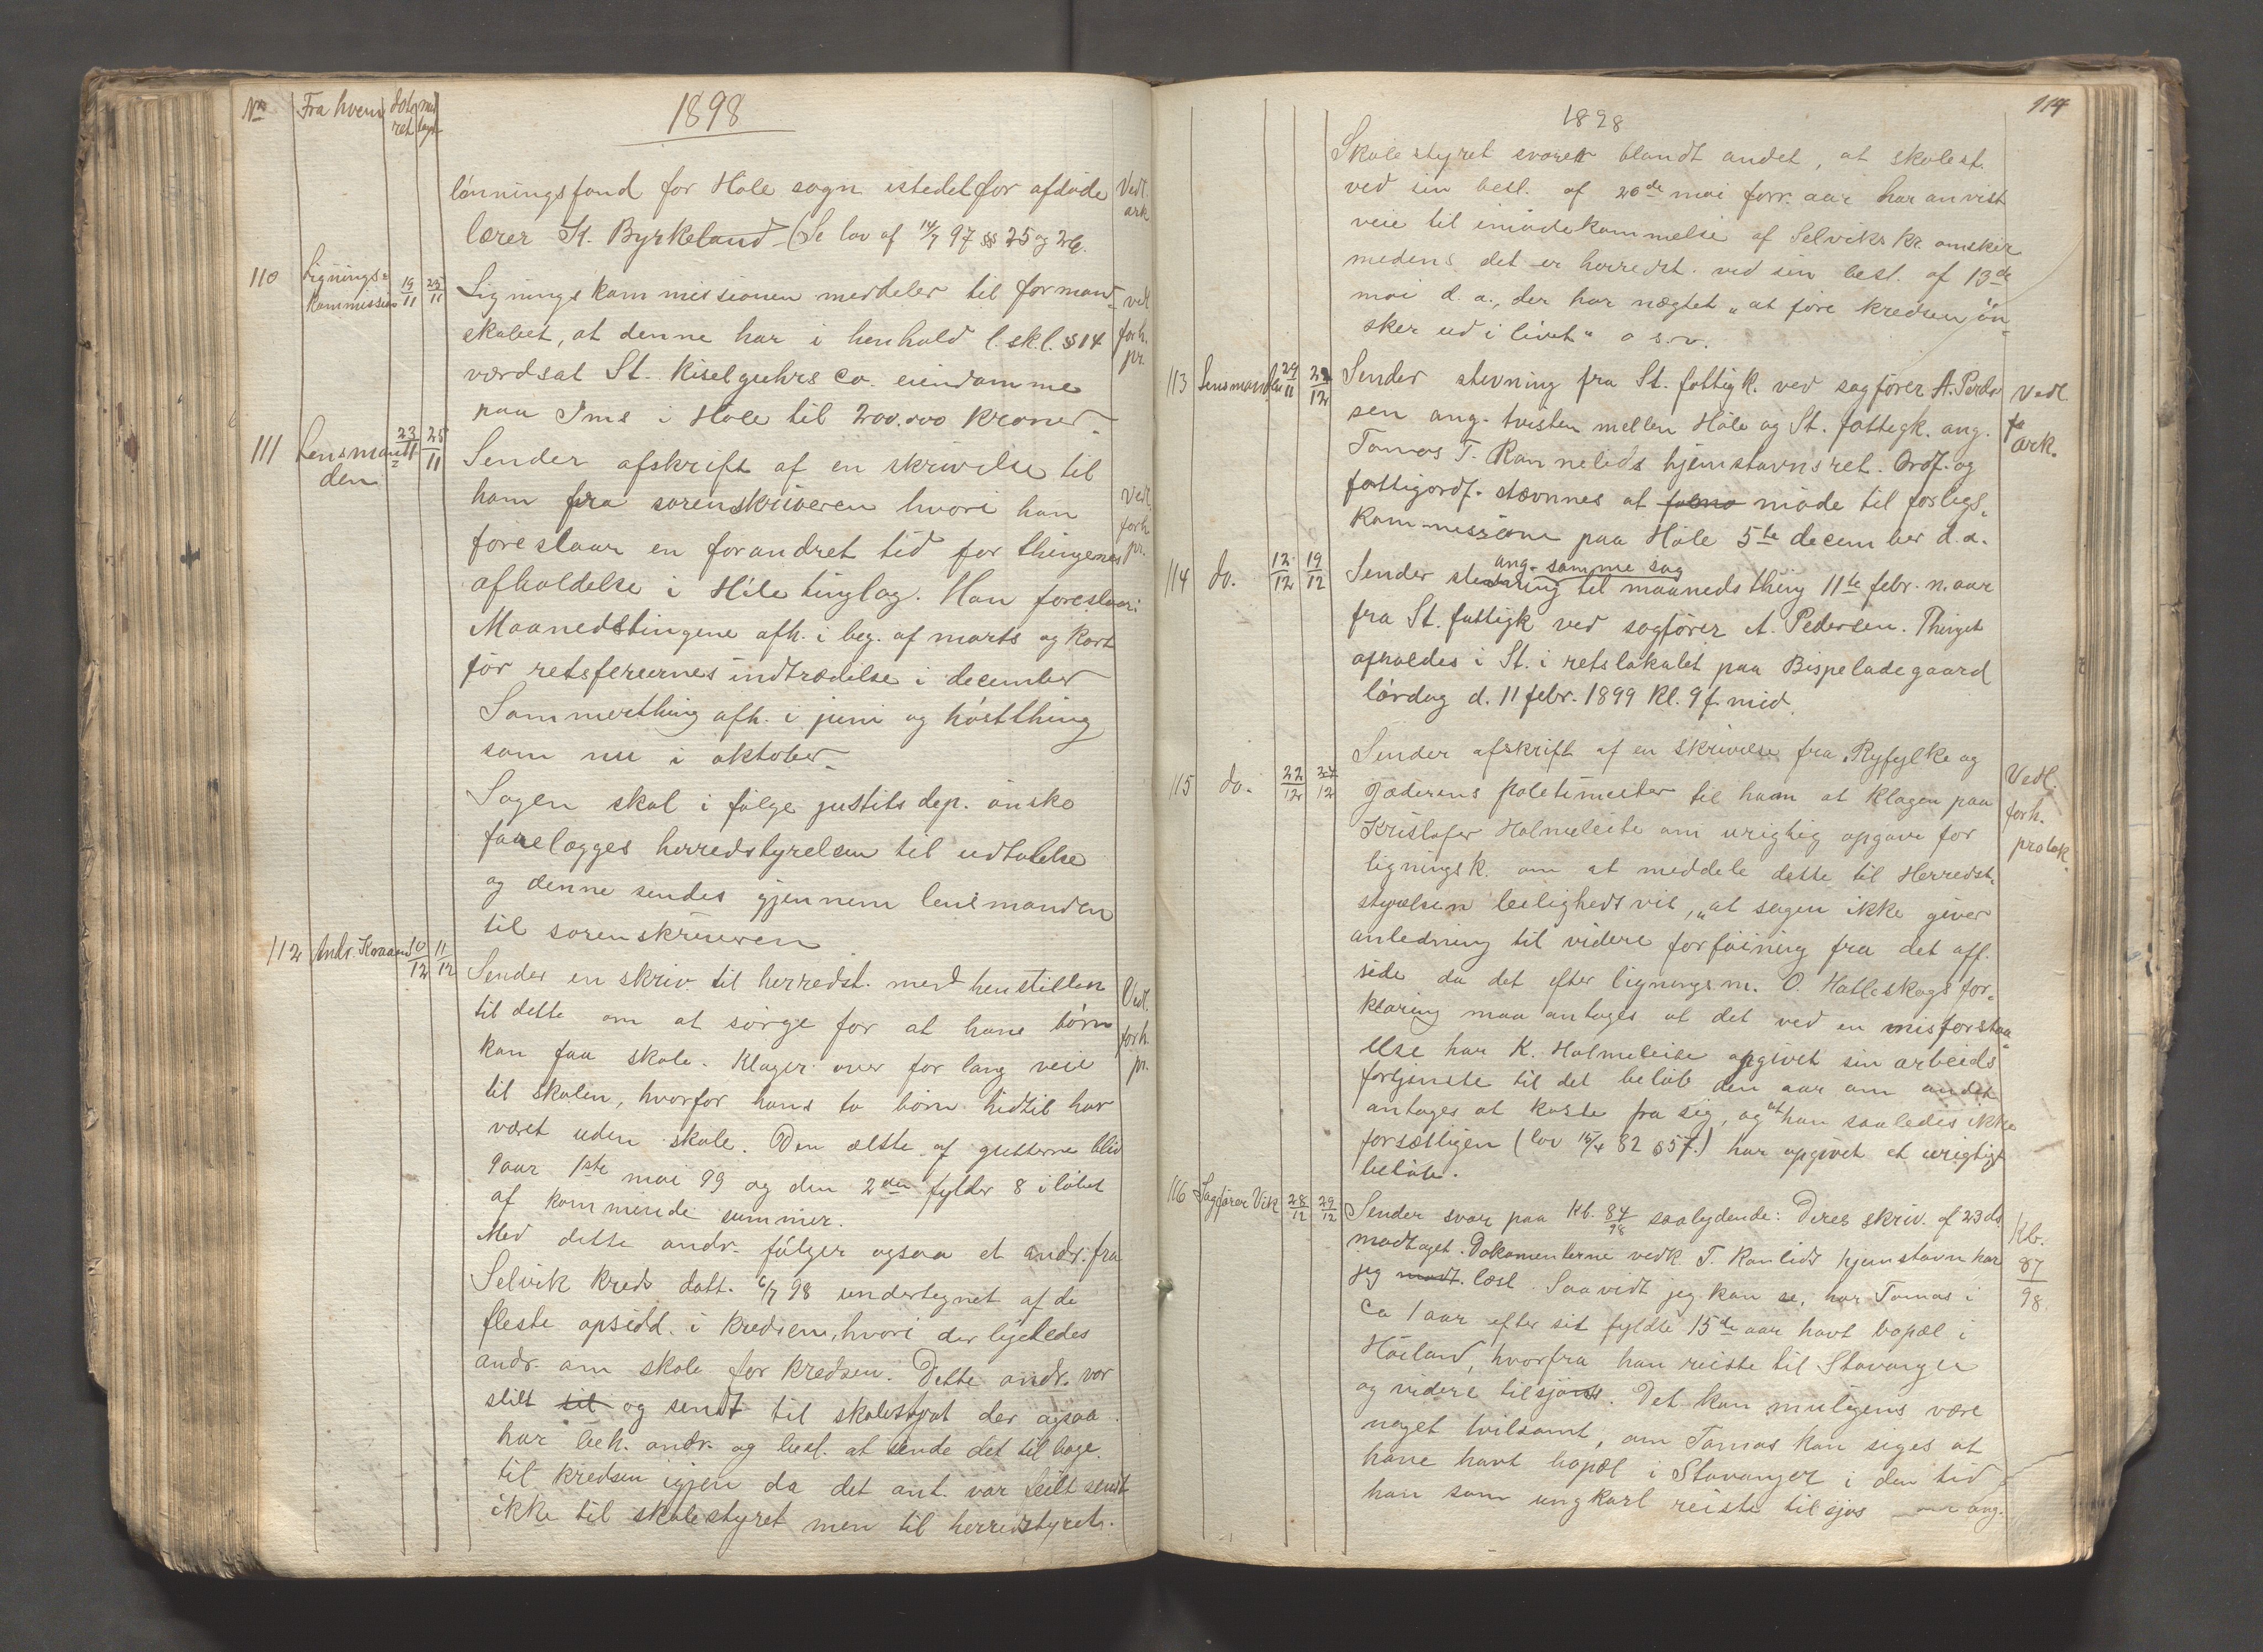 Nr Fra hvem date mod
ret tagn
1898
lønningsfond for Höle sogn istedetfor afdøde Vedl.
lærer St. Byrkeland (Se lov af 14/7 97 §§ 25 og 26. ark
110 Lignings= 19/11 25/11 Ligningskommissionen meddeler til formand= vedl.
kommission
skabet, at denne har i henhold l. sk.l. § 14 forh.
værdsat St. Kiselguhrs Co. eiendomme pr.
paa Ims i Höle til 200.000 kroner.
111 Lensman= 23/11 25/11 Sender afskrift af en skrivelse til
den
ham fra sorenskriveren hvori han Vedl.
foreslaar en forandret tid for thingenes forh. pr.
afholdelse i Höle tinglag. Han foreslaar:
Maanedstingene afh. i beg. af marts og kort
før retsferiernes indtrædelse i december
Sommerthing afh. i juni og høstthing
som nu i oktober.
Sagen skal i følge justits dep. ønske
forelægges herredstyrelsen til udtalelse
og denne sendes gjennem lensmanden
til sorenskriveren
112 Andr. Kvaavik 10/12 11/12 Sender en skriv. til herredst. med henstillen Vedl.
til dette om at sørge for at hans børn forh.
kan faa skole. Klager over for lang veie pr.
til skolen, hvorfor hans to børn hidtil har
været uden skole. Den ælste af gutterne bliv
9 aar 1ste mai 99 og den 2den fylder 8 i løbet
af kommende sommer.
Med dette andr. følger ogsaa et andr. fra
Selvik kreds datt. 6/7 98 undertegnet af de
fleste opsidd. i kredsen, hvori der ligeledes
andr. om skole for kredsen. Dette andr. var
stilt til og sendt til skolestyret der ogsaa
har beh. andr. og besl. at sende det tilbage
til kredsen igjen da det ant. var feilt sendt
ikke til skolestyret men til herredstyret.
114
1898
Skolestyret svarer blandt andet, at skolest.
ved sin besl. af 20de mai forr. aar har anvist
veie til imødekommelse af Selviks kr. ønsker
medens det er herredst. ved sin best. af 13de
mai d. a., der har nægtet „at føre kredsens øn=
sker ud i livet“ o s. v.
113 Lensmanden 29/11 2/12 Sender stevning fra St. fattigk. ved sagfører A. Peder Vedl.
sen ang. tvisten mellem Höle og St. fattigk. ang. fa
Tomas T. Ranneleds hjemstavnsret. Ordf. og ark.
fattigordf. stævnes at møde til forligs=
kommissione paa Höle 5te december d. a.
ang. samme sag
114 do. 12/12 19/12 Sender stevning til maanedsthing 11te febr. n. aar
fra St. fattigk ved sagfører A. Pedersen. Thinget
afholdes i St. i retslokalet paa Bispeladegaard
lørdag d. 11 febr. 1899 kl. 9 f. mid.
Sender afskrift af en skrivelse fra Ryfylke og
115 do. 22/12 27/12 Jæderens politimester til ham at klagen paa Vedl.
Kristofer Holmeleite om urigtig opgave for forh.
ligningsk. om at meddele dette til Herredst= protok.
styrelsen leilighedsvis, „at sagen ikke giver
anledning til videre forføining fra det off.
side da det efter ligningsm. O. Hatleskogs for=
klaring maa antages at det ved en misforstaa=
else har K. Holmeleite opgivet sin arbeids
fortjeneste til det beløb den aar om andet
antages at kaste fra sig, og at han saaledes ikke
forsætligen (lov 15/4 82 § 57.) har opgivet et urigtigt
beløb.
116 Sagfører Vik 28/12 29/12 Sender svar paa Kb. 84/98 saalydende: Deres skriv. af 23 ds. Kb.
modtaget. Dokumenterne vedk. T. Ranlids hjemstavn har 87
jeg modt. læst. Saavidt jeg kan se, har Tomas i 98.
ca 1 aar efter sit fyldte 15de aar havt bopæl i
Höiland, hvorfra han reiste til Stavanger
og videre tilsjøs. Det kan muligens være
noget tvilsomt, om Tomas kan siges at
have havt bopæl i Stavanger i den tid
han som ungkarl reiste tilsjøs ang.